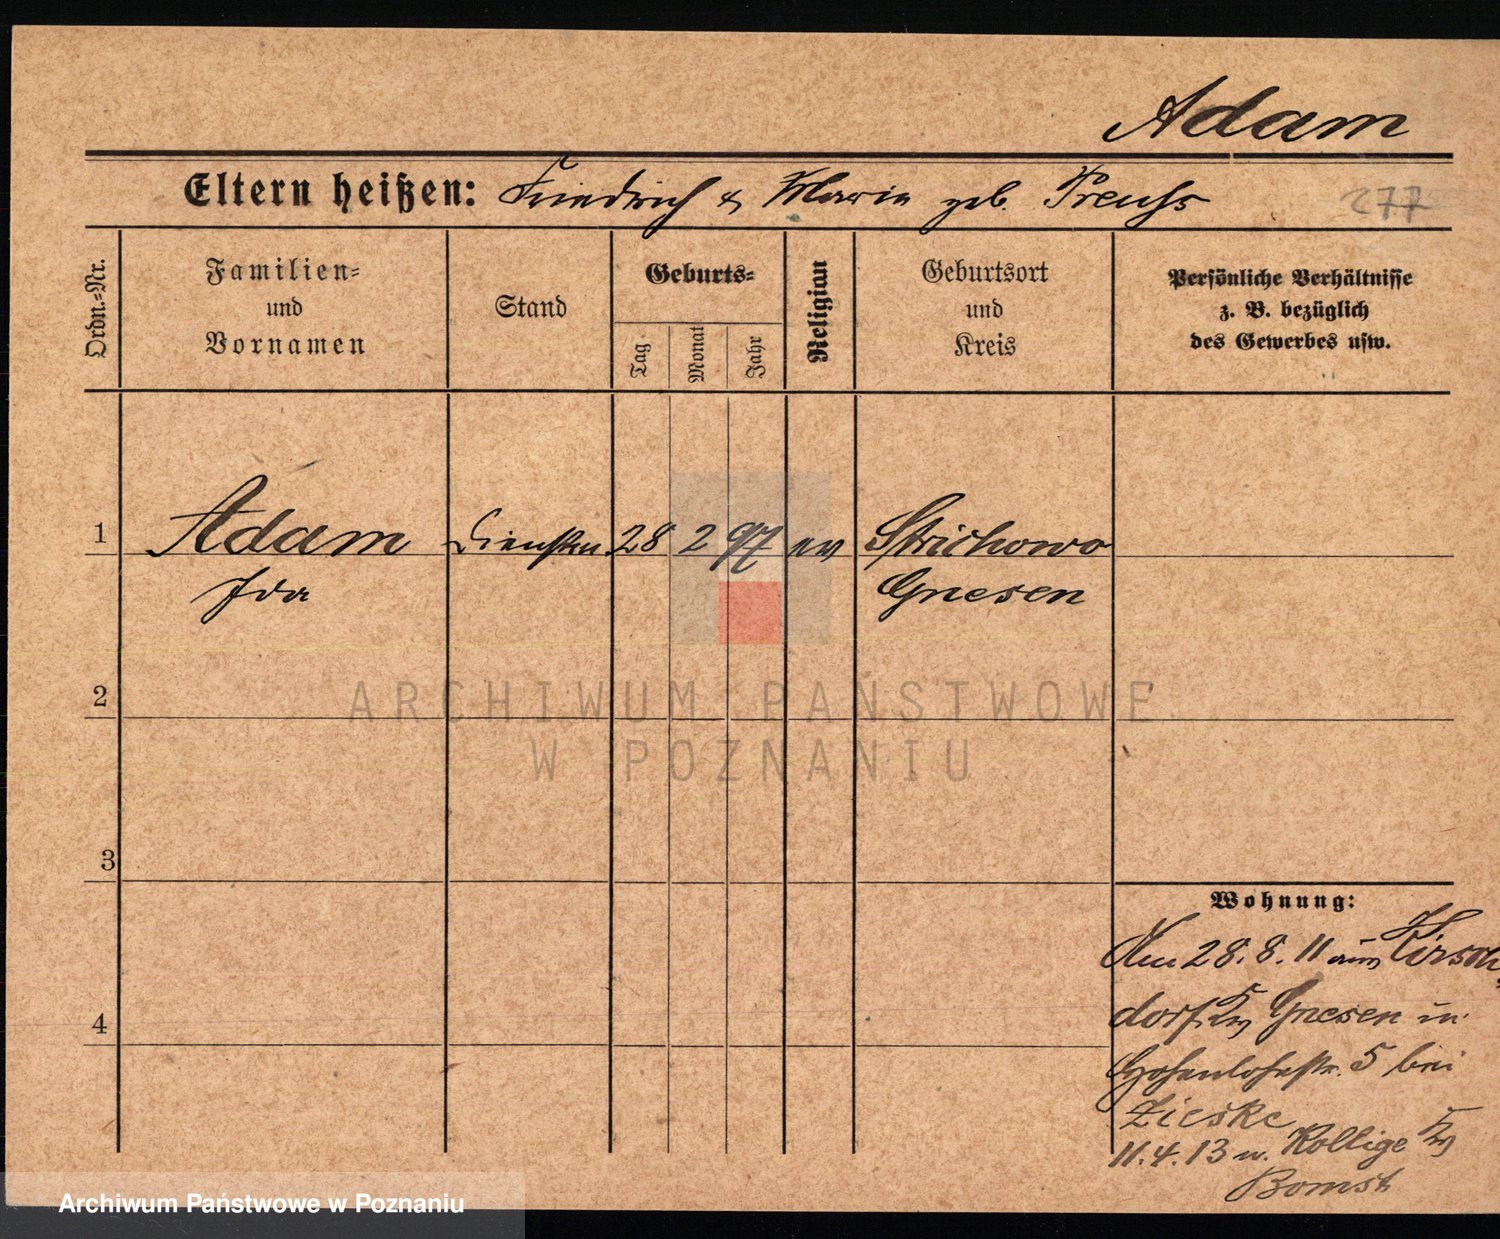 Adam
Eltern heißen: Friedrich & Marie geb. Preuss
277
Ordn.=Nr.
Familien=
und
Vornamen
Stand
Geburts=
Tag
Monat
Jahr
Religian
Geburtsort
und
Kreis
Persönliche Verhältnisse
z. B. bezüglich
des Gewerbes usw.
1 Adam 28 2 97 ev Strichowo
Ida Gnesen
2
3
4
Wohnung:
Am 28. 8. 11 aus Kirsch
dorf Kr Gnesen in
Hohenlohestr. 5 bei
Zieske
11. 4. 13 n. Kollige Kr
Bomst
ARCHIWUM PAŃSTWOWE
W POZNANIU
Archiwum Państwowe w Poznaniu